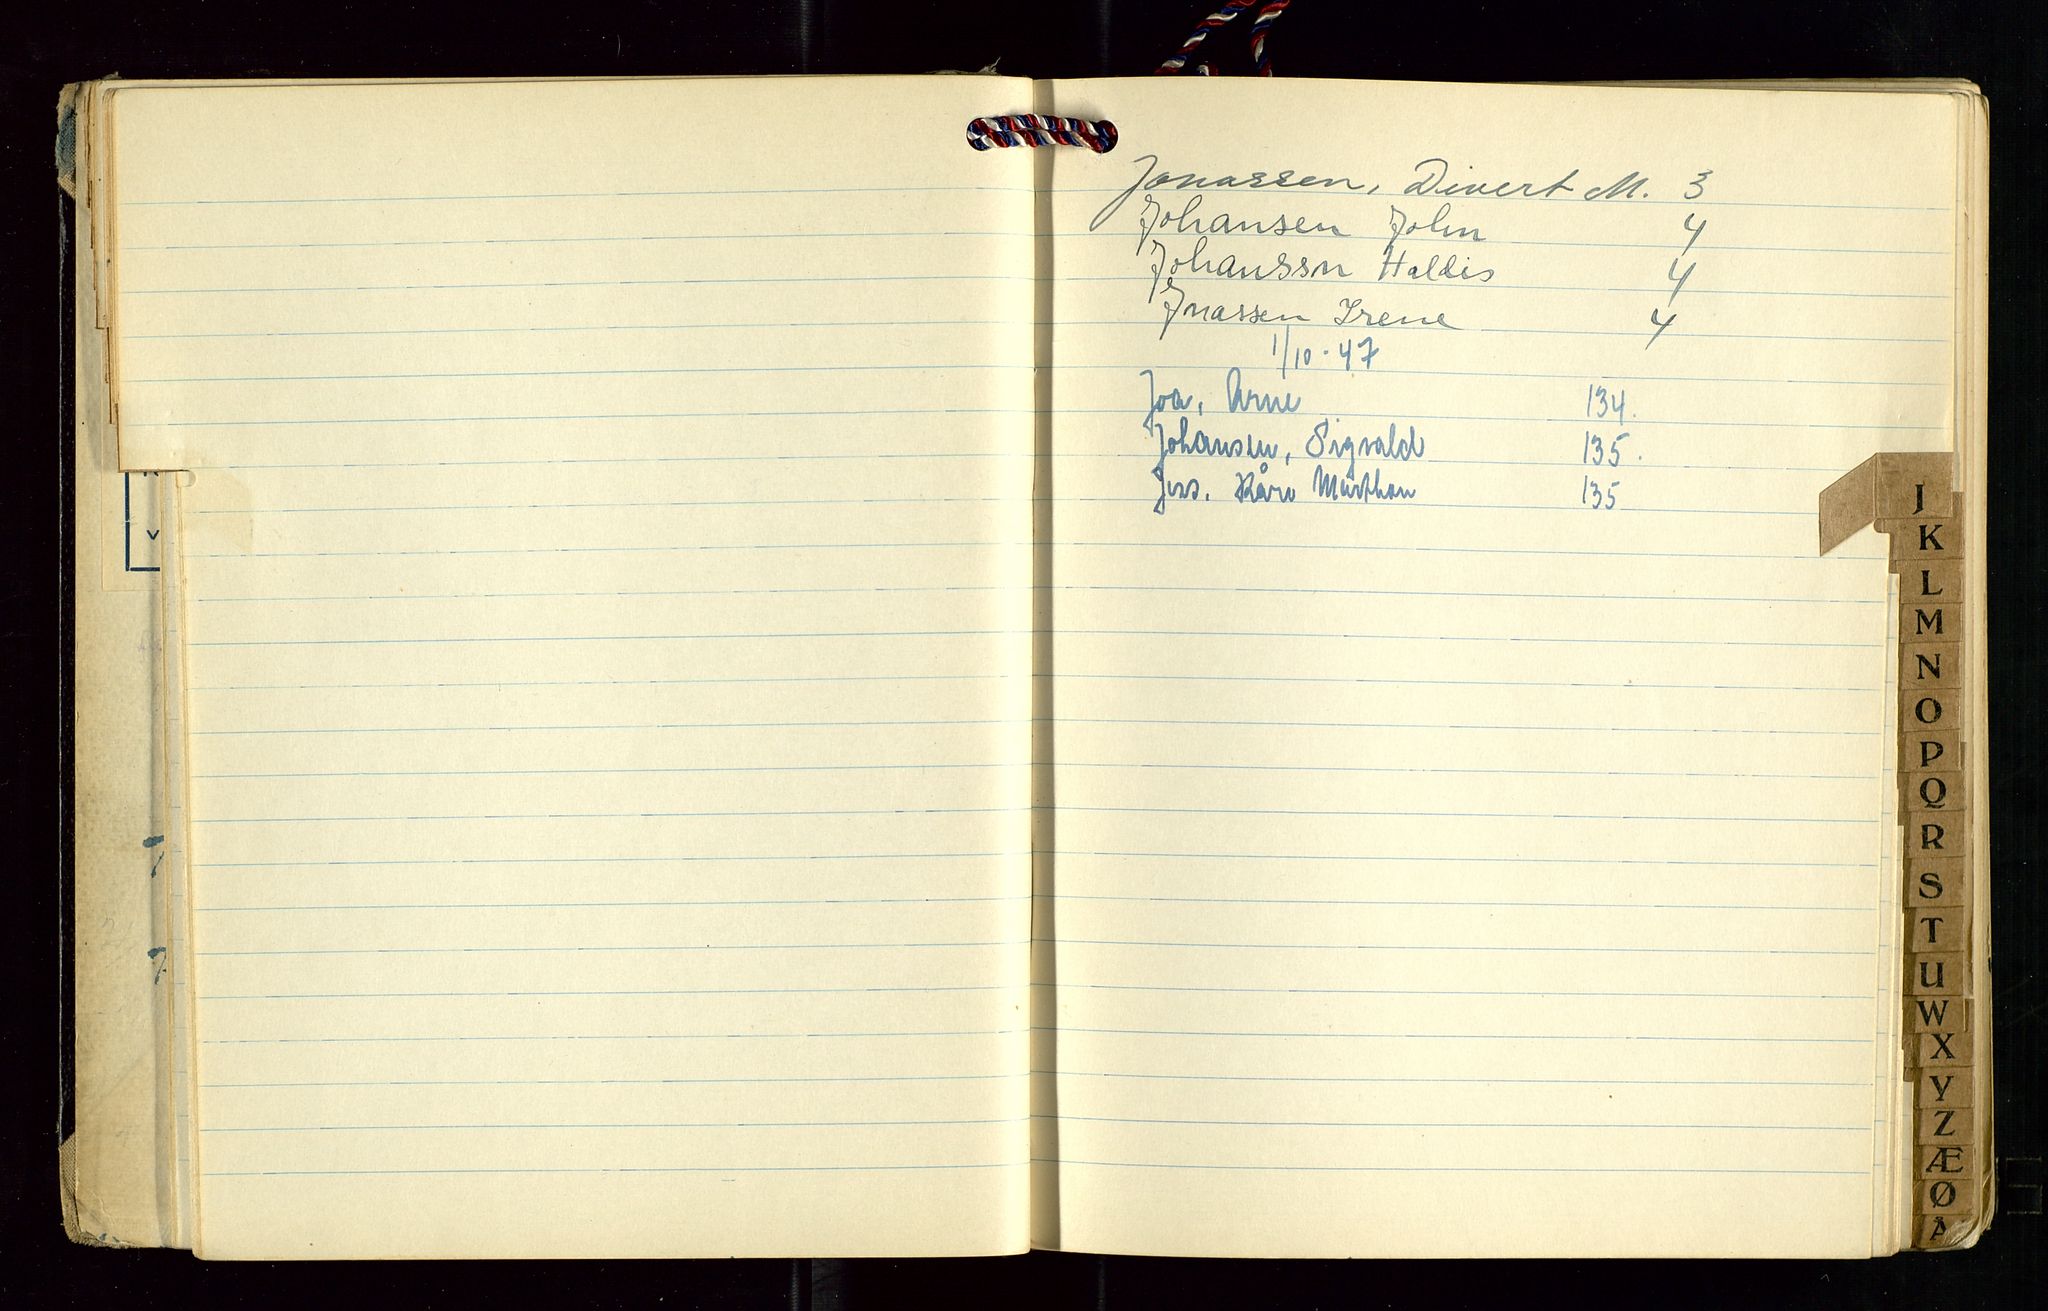 Jonassen, Divert M. 3
Johansen John 4
Johanssn Haldis 4
Jnassen Irene 4
1/10 - 47
Joa, Arne 134.
Johansen, Sigvald 135.
Jess. Kåre Marthon 135
J
K
L
M
N
O
P
Q
R
S
T
U
W
X
Y
Z
Æ
Ø
Å